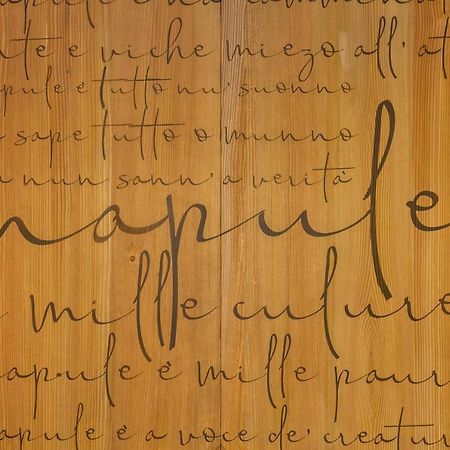 apule è na cammenata
nte e viche miezo all' at
pule è tutto nu' suonno
sape tutto o munno
nun sann' a verità
napule
mille culure
apule è mille paur
apule è a voce de' creatur